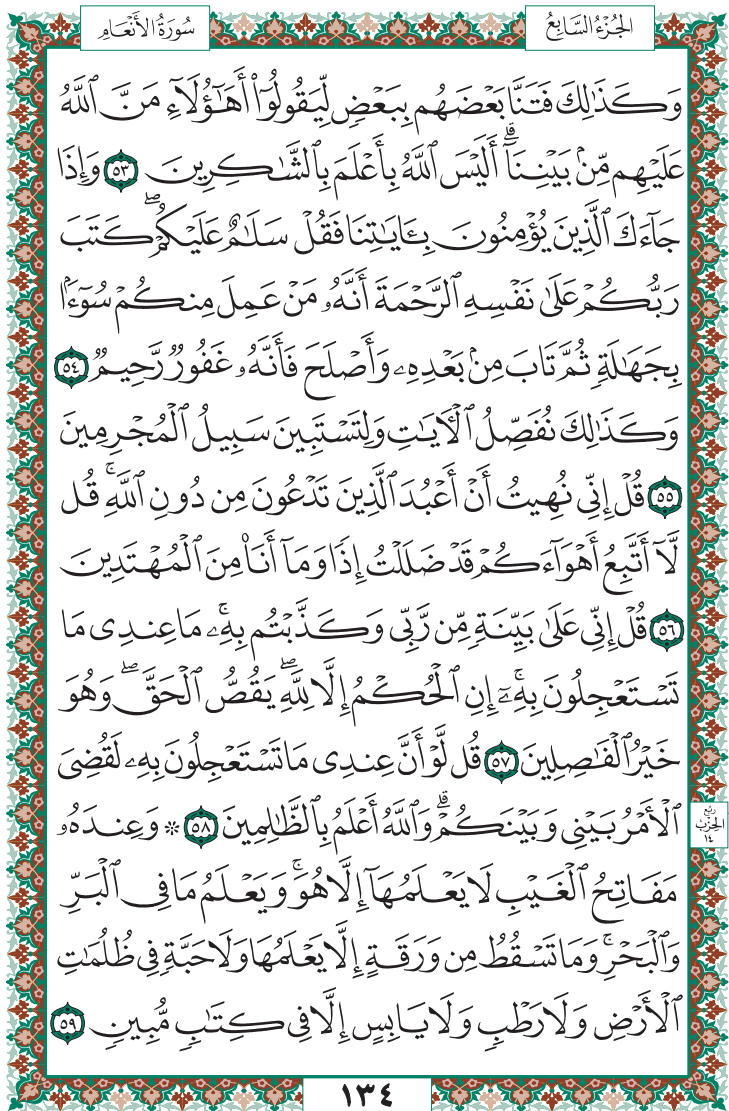 الجُزْءُ السَّابِعُ
سُورَةُ الأَنْعَامِ
وَكَذَٰلِكَ فَتَنَّا بَعْضَهُم بِبَعْضٍ لِّيَقُولُوٓا۟ أَهَـٰٓؤُلَآءِ مَنَّ ٱللَّهُ
عَلَيْهِم مِّنۢ بَيْنِنَآ ۗ أَلَيْسَ ٱللَّهُ بِأَعْلَمَ بِٱلشَّـٰكِرِينَ ٥٣ وَإِذَا
جَآءَكَ ٱلَّذِينَ يُؤْمِنُونَ بِـَٔايَـٰتِنَا فَقُلْ سَلَـٰمٌ عَلَيْكُمْ ۖ كَتَبَ
رَبُّكُمْ عَلَىٰ نَفْسِهِ ٱلرَّحْمَةَ أَنَّهُۥ مَنْ عَمِلَ مِنكُمْ سُوٓءًۢا
بِجَهَـٰلَةٍ ثُمَّ تَابَ مِنۢ بَعْدِهِۦ وَأَصْلَحَ فَأَنَّهُۥ غَفُورٌ رَّحِيمٌ ٥٤
وَكَذَٰلِكَ نُفَصِّلُ ٱلْـَٔايَـٰتِ وَلِتَسْتَبِينَ سَبِيلُ ٱلْمُجْرِمِينَ
٥٥ قُلْ إِنِّى نُهِيتُ أَنْ أَعْبُدَ ٱلَّذِينَ تَدْعُونَ مِن دُونِ ٱللَّهِ ۚ قُل
لَّآ أَتَّبِعُ أَهْوَآءَكُمْ ۙ قَدْ ضَلَلْتُ إِذًا وَمَآ أَنَا۠ مِنَ ٱلْمُهْتَدِينَ
٥٦ قُلْ إِنِّى عَلَىٰ بَيِّنَةٍ مِّن رَّبِّى وَكَذَّبْتُم بِهِۦ ۚ مَا عِندِى مَا
تَسْتَعْجِلُونَ بِهِۦٓ ۚ إِنِ ٱلْحُكْمُ إِلَّا لِلَّهِ ۖ يَقُصُّ ٱلْحَقَّ ۖ وَهُوَ
خَيْرُ ٱلْفَـٰصِلِينَ ٥٧ قُل لَّوْ أَنَّ عِندِى مَا تَسْتَعْجِلُونَ بِهِۦ لَقُضِىَ
ٱلْأَمْرُ بَيْنِى وَبَيْنَكُمْ ۗ وَٱللَّهُ أَعْلَمُ بِٱلظَّـٰلِمِينَ ٥٨ ۞ وَعِندَهُۥ
مَفَاتِحُ ٱلْغَيْبِ لَا يَعْلَمُهَآ إِلَّا هُوَ ۚ وَيَعْلَمُ مَا فِى ٱلْبَرِّ
وَٱلْبَحْرِ ۚ وَمَا تَسْقُطُ مِن وَرَقَةٍ إِلَّا يَعْلَمُهَا وَلَا حَبَّةٍ فِى ظُلُمَـٰتِ
ٱلْأَرْضِ وَلَا رَطْبٍ وَلَا يَابِسٍ إِلَّا فِى كِتَـٰبٍ مُّبِينٍ ٥٩
رُبْع
الحِزْب
١٤
١٣٤